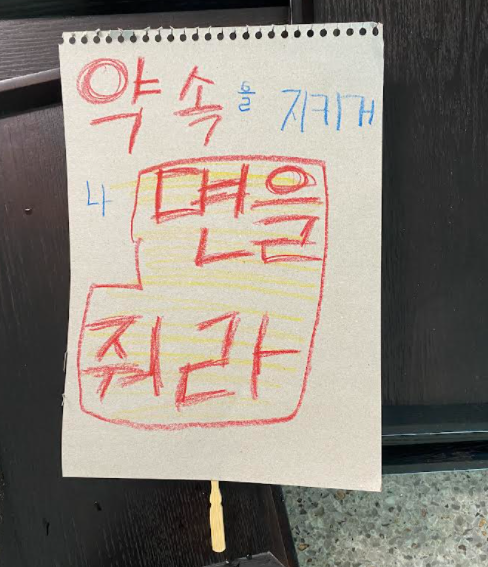 약속을 지키거
나 면을
줘라